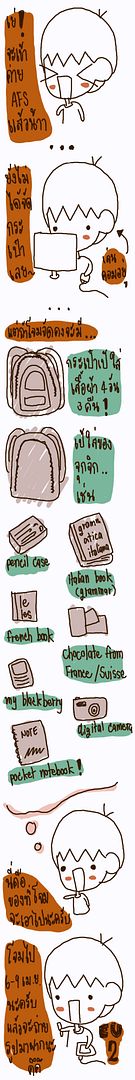 เย่!
จะเข้า
ค่าย
AFS
แล้วน้าา
...
ยังไม่
ได้จัด
กระ
เป๋า
เลย~
เล่น
คอมอยู่
...
แต่ถ้าโจมจัดคงจะมี...
กระเป๋าเป้ใส่
เสื้อผ้า 4 วัน
3 คืน!
เป้ใส่ของ
จุกจิก..
เช่น
pencil case
grammatica italiana
italian book
(grammar)
le
los
french book
chocolate from
France/Suisse
my blackberry
digital camera
NOTE
pocket notebook!
นี่คือ
ของที่โจม
จะเอาไปนะครับ
โจมไป
6-9 เม.ย
นะครับ
แล้วจะถ่าย
รูปมาฝากนะ
2